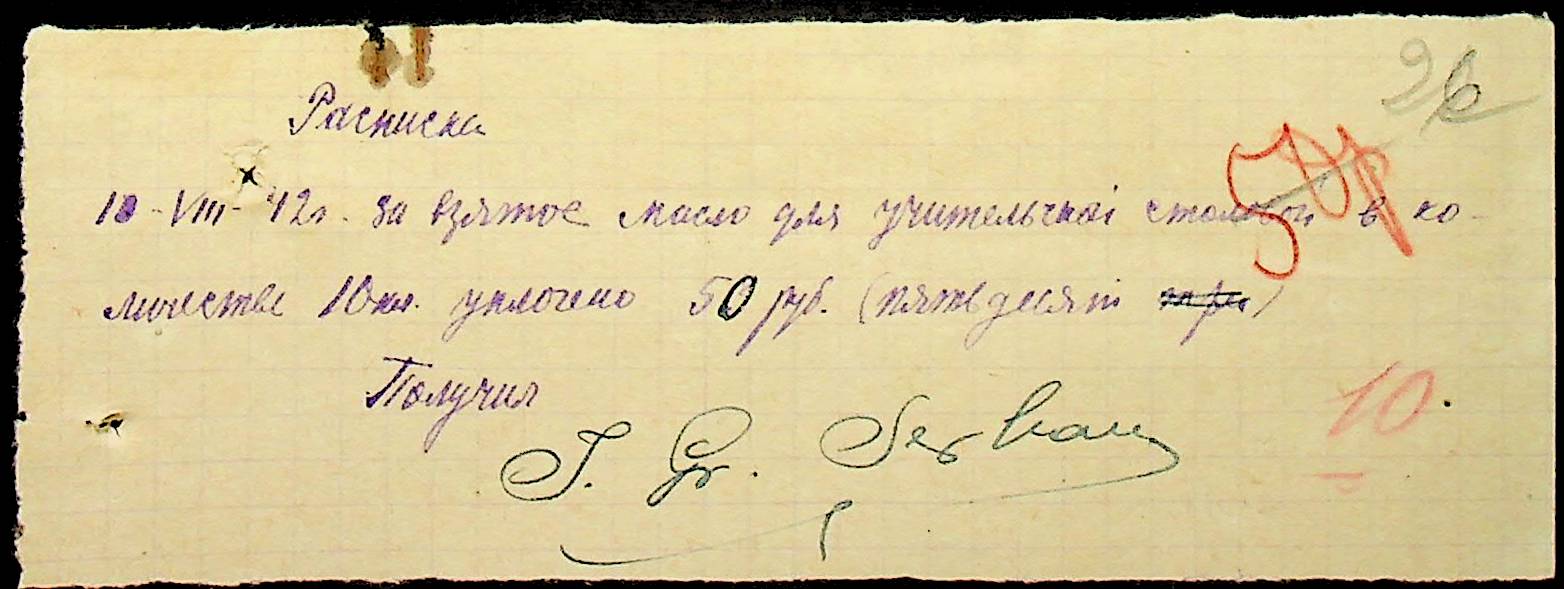 Расписка
50р
10-VIII-42г. за взятое масло для учительской столовой в ко-
личестве 10кл. уплочено 50 руб. (пятьдесят)
Получил
10.
J. Gr. Serban